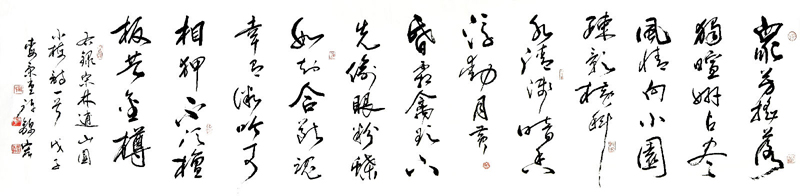 眾芳摇落
獨暄妍占尽
風情向小園
疎影横斜
水清浅暗香
浮動月黄
昏霜禽欲下
先偷眼粉蝶
如知合断魂
幸有微吟可
相狎不须檀
板共金樽
右録宋林逋山園
小梅诗一首 戊子